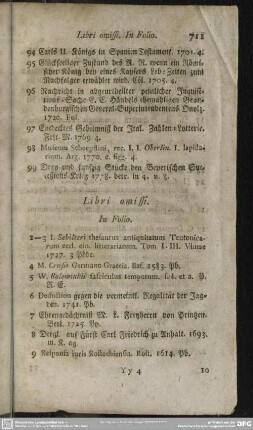 Libri omissi. In Folio. 711
94 Carls II. Königs in Spanien Testament. 1701. 4.
95 Glückseeliger Zustand des R. R. wenn ein Römi-
scher König bey eines Kaysers Leb-Zeiten zum
Nachfolger erwählet wird. Cöl. 1705. 4.
96 Nachricht in abgenöthigter peinlicher Inquisi-
tions-Sache C. C. Händels ehemahligen Bran-
denburgischen General-Superintendentens Onolz.
1720. Ful.
97 Entdecktes Geheimniß der Ital. Zahlen-Lotterie.
Frkf. M. 1769. 4.
98 Museum Schoepflini, rec. I. I. Oberlin. T. lapida-
rium. Arg. 1770. c. figg. 4.
99 Drey und funfzig Stücke den Beyerischen Suc-
cessions-Krieg 1778. betr. in 4. u. 8.
Libri omissi.
In Folio.
1—3 I. Schilteri thesaurus antiquitatum Teutonica-
rum eccl. civ. litterariarum. Tom I-III. Vlmae
1727. 3 Pbde.
4 M. Crusii Germano Graecia. Bas. 1585. Pb.
5 W. Rolewinkii fasciculus temporum. s. l. et a. P.
R. E.
6 Deduction gegen die vermeintl. Regalität der Jag-
den. 1741. Pb.
7 Ehrengedächtniß M. L. Freyherrn von Printzen.
Berl. 1725. Pp.
8 Dergl. auf Fürst Carl Friedrich zu Anhalt. 1693.
m. K. ag.
9 Relponsa iuris Rostochiensia. Rost. 1614. Pb.
Yy 4 10